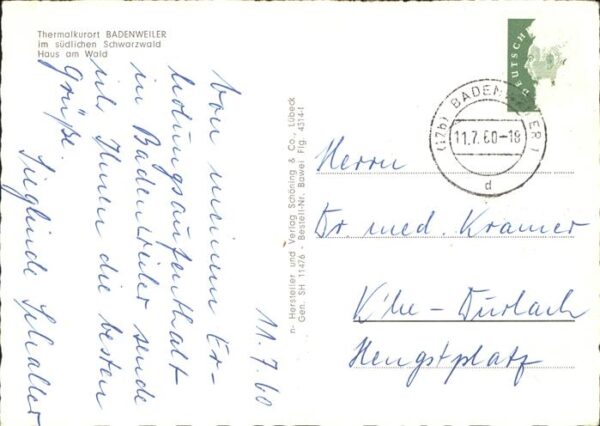 Thermalkurort BADENWEILER
im südlichen Schwarzwald
Haus am Wald
11.7.60
Von meinem Er-
holungsaufenthalt
in Badenweiler sende
ich Ihnen die besten
Grüße.
Sieglinde Schaller
n- Hersteller und Verlag Schöning & Co., Lübeck
Gen. SH 11476 - Bestell-Nr. Bawei Flg. 4314-1
DEUTSCH
(17b) BADENWEILER
11.7.60-18
d
Herrn
Dr. med. Kramer
K'he-Durlach
Hengstplatz